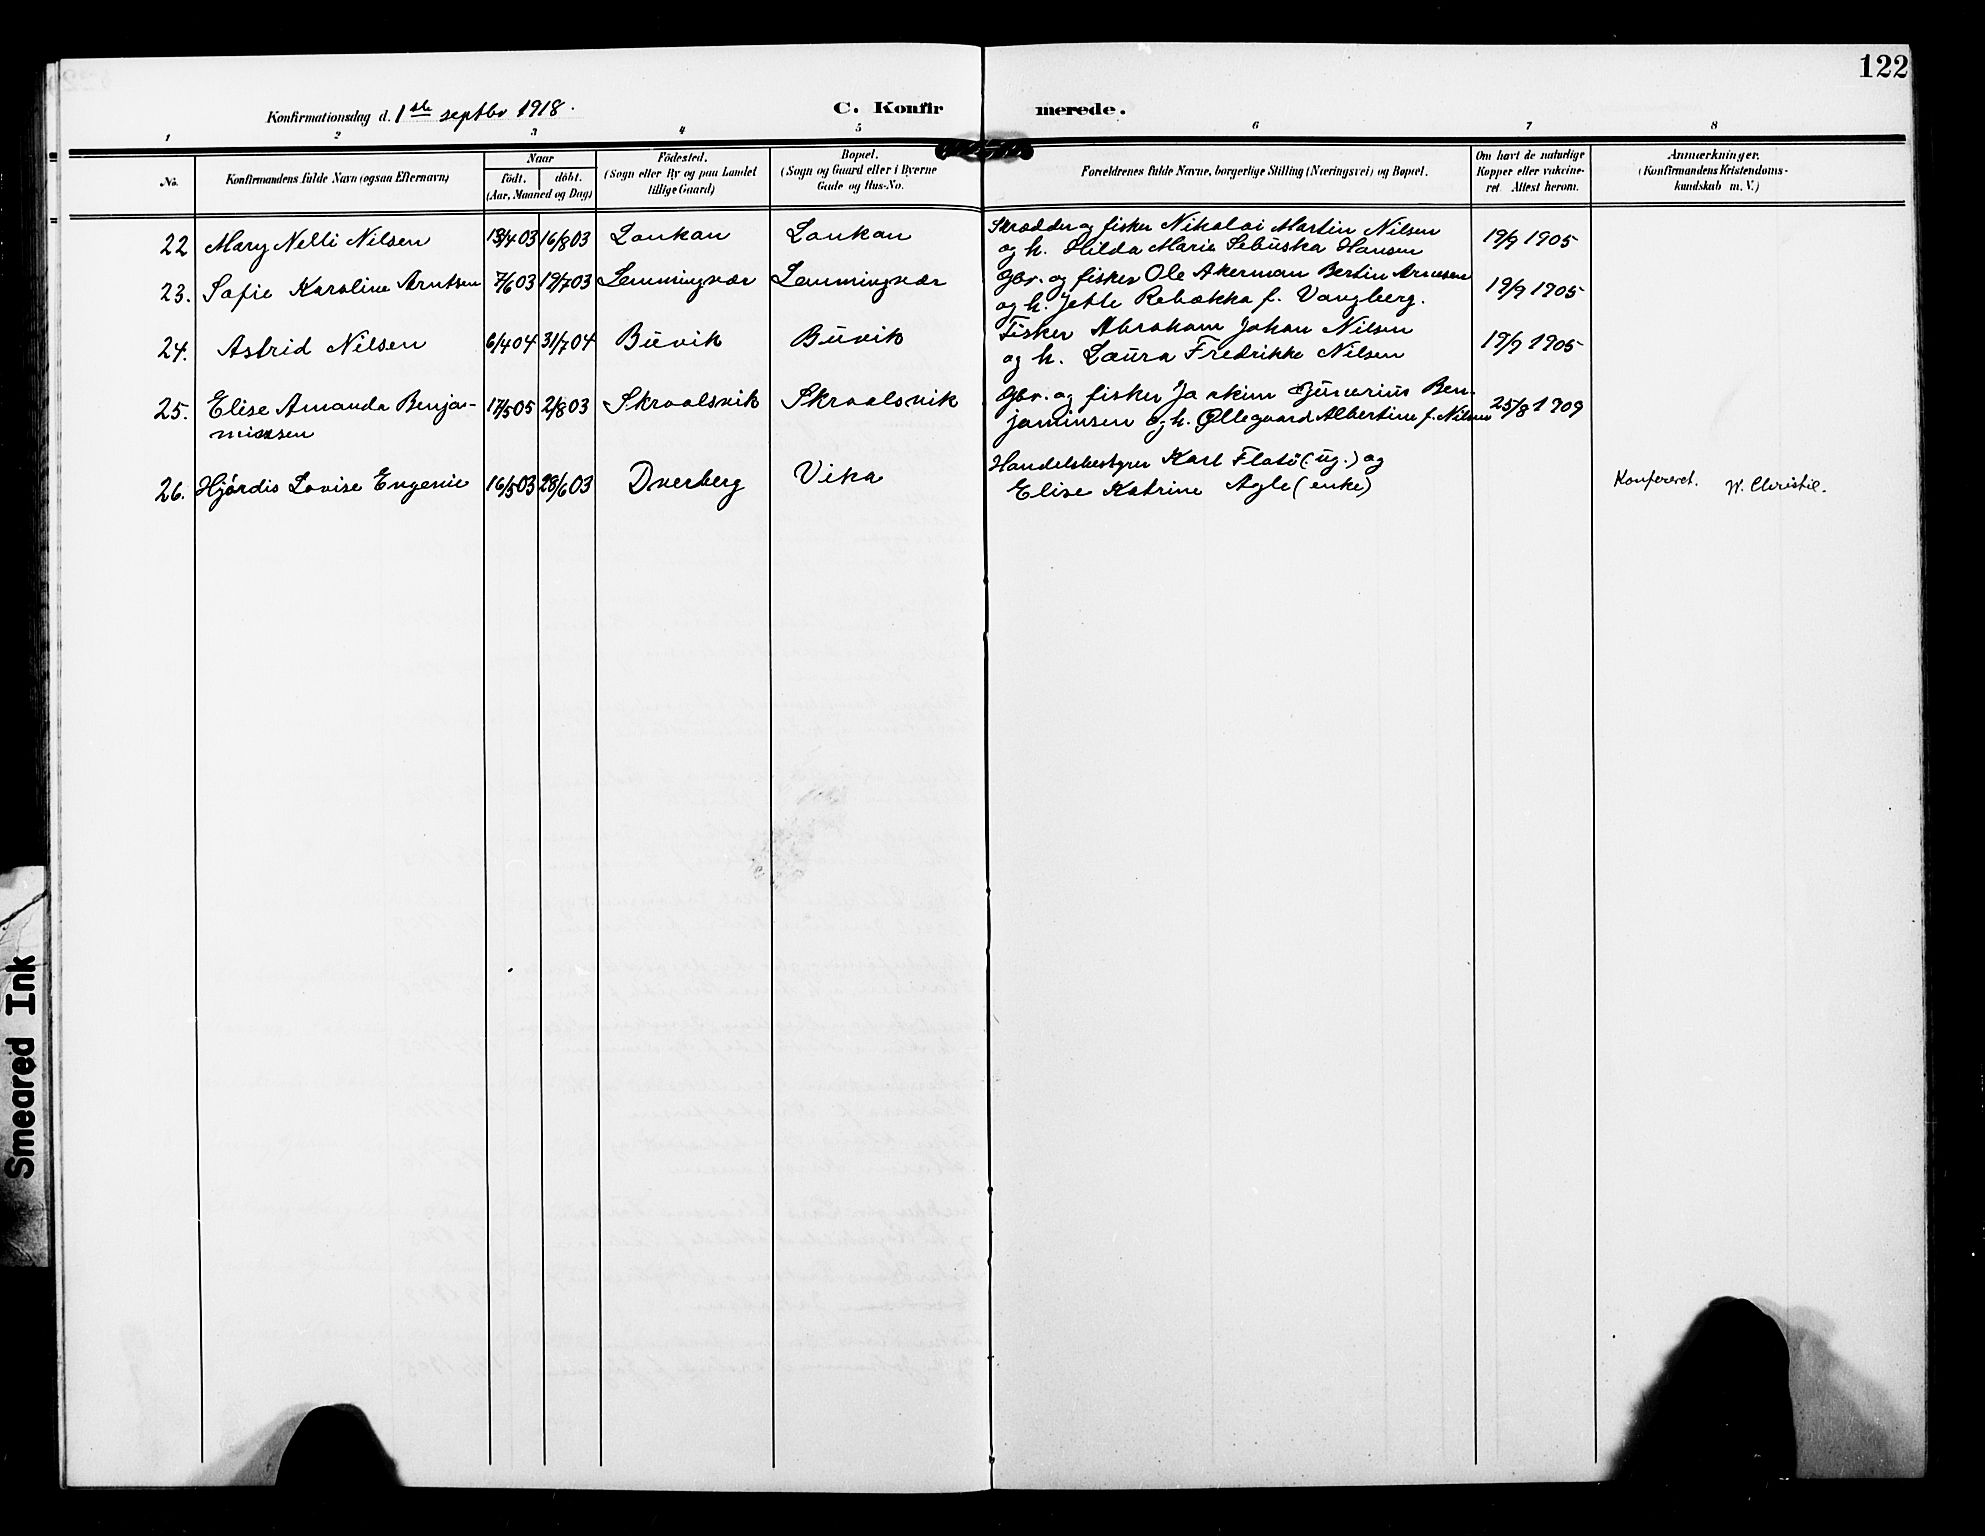 122
Konfirmationsdag d. 1ste septbr 1918.
C. Konfirmerede.
1 2 3 4 5 6 7 8
No.
Konfirmandens fulde Navn (ogsaa Efternavn)
Naar
födt. döbt.
(Aar, Maaned og Dag)
Födested.
(Sogn eller By og paa Landet
tillige Gaard)
Bopæl.
(Sogn og Gaard eller i Byerne
Gade og Hus-No.
Forældrenes fulde Navne, borgerlige Stilling (Næringsvei) og Bopæl.
Om havt de naturlige
Kopper eller vakcine-
ret. Attest herom.
Anmærkninger.
(Konfirmandens Kristendoms-
kundskab m. V.)
22 Mary Nelli Nilsen 13/4 03 16/8 03 Laukan Laukan Skrædder og fisker Nikolai Martin Nilsen 19/9 1905
og h. Hilda Marie Sebuska Hansen
23. Sofie Karoline Arntsen 7/6 03 19/7 03 Lemmingvær Lemmingvær Gbr. og fisker Ole Akerman Bertin Arntsen 19/9 1905
og h. Jette Rebekka f. Vangberg.
24. Astrid Nilsen 6/4 04 31/7 04 Buvik Buvik Fisker Abraham Johan Nilsen 19/9 1905
og h. Laura Fredrikke Nilsen
25. Elise Amanda Benja- 17/5 05 2/8 03 Skrolsvik Skrolsvik Gbr. og fisker Joakim Ben- 25/8 1909
minsen jaminsen og h. Øllegaard Albertine f. Nilsen
26. Hjördis Lovise Eugenie 16/5 03 28/6 03 Dverberg Vika Handelsbestyrer Karl Flatö (: ug.) og
Elise Katrine Agle (enke)
Konfereret. W. Christie.
Smeared Ink